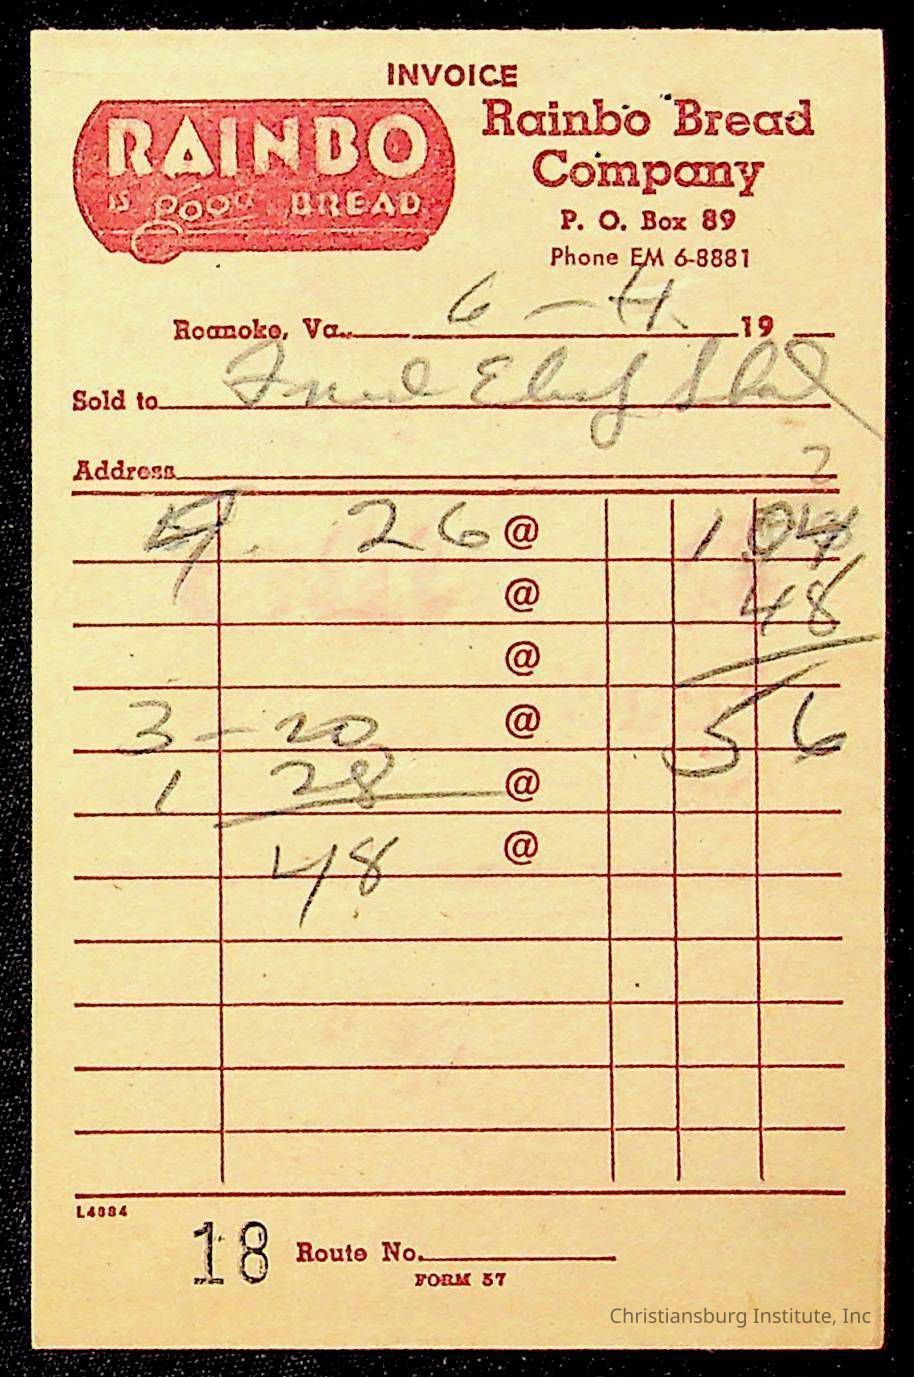 INVOICE
RAINBO
IS GOOD BREAD
Rainbo Bread
Company
P. O. Box 89
Phone EM 6-8881
Roanoke, Va. 6-4 19
Sold to
Address
4 26 @ 1 04
@ 48
@
3 - 20 @ 56
1 28 @
48 @
L4984
18 Route No.
FORM 57
Christiansburg Institute, Inc